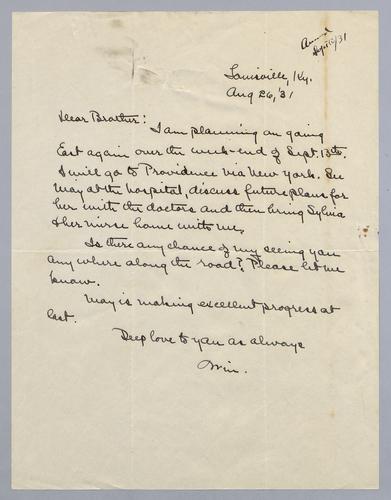 Answd
Sept 10/31
Louisville, Ky.
Aug 26, '31
Dear Brother:
I am planning on going
East again over the week-end of Sept. 13th.
I will go to Providence via New York. See
May at the hospital, discuss future plans for
her with the doctors and then bring Sylvia
& her nurse home with me.
Is there any chance of my seeing you
any where along the road? Please let me
know.
May is making excellent progress at
last.
Deep love to you as always
Win.